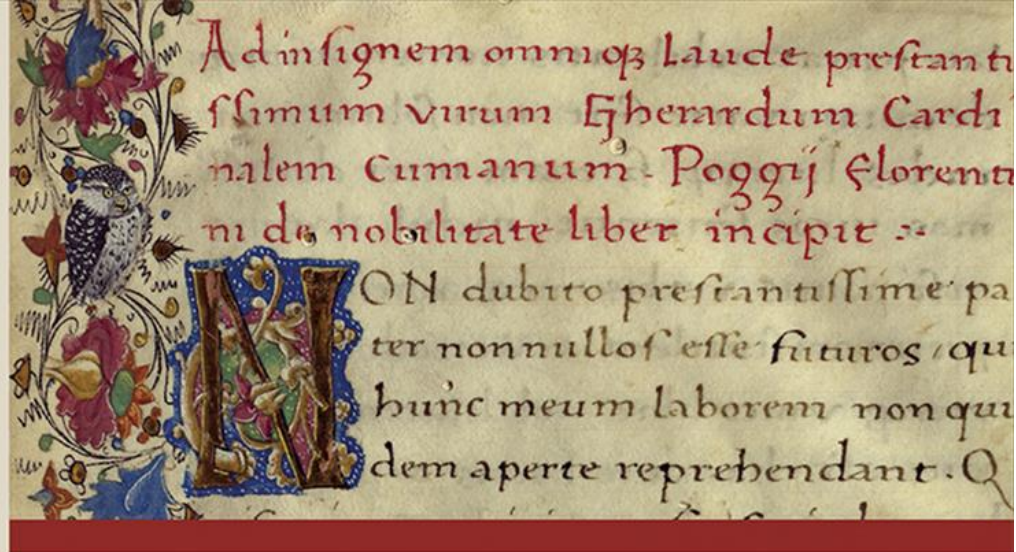 Ad insignem omniqꝫ laude prestanti
ssimum virum Gherardum Cardi
nalem Cumanum. Poggij Florenti
ni de nobilitate liber incipit :~
NON dubito prestantissime pa
ter nonnullos esse futuros, qui
hunc meum laborem non qui
dem aperte reprehendant. Q